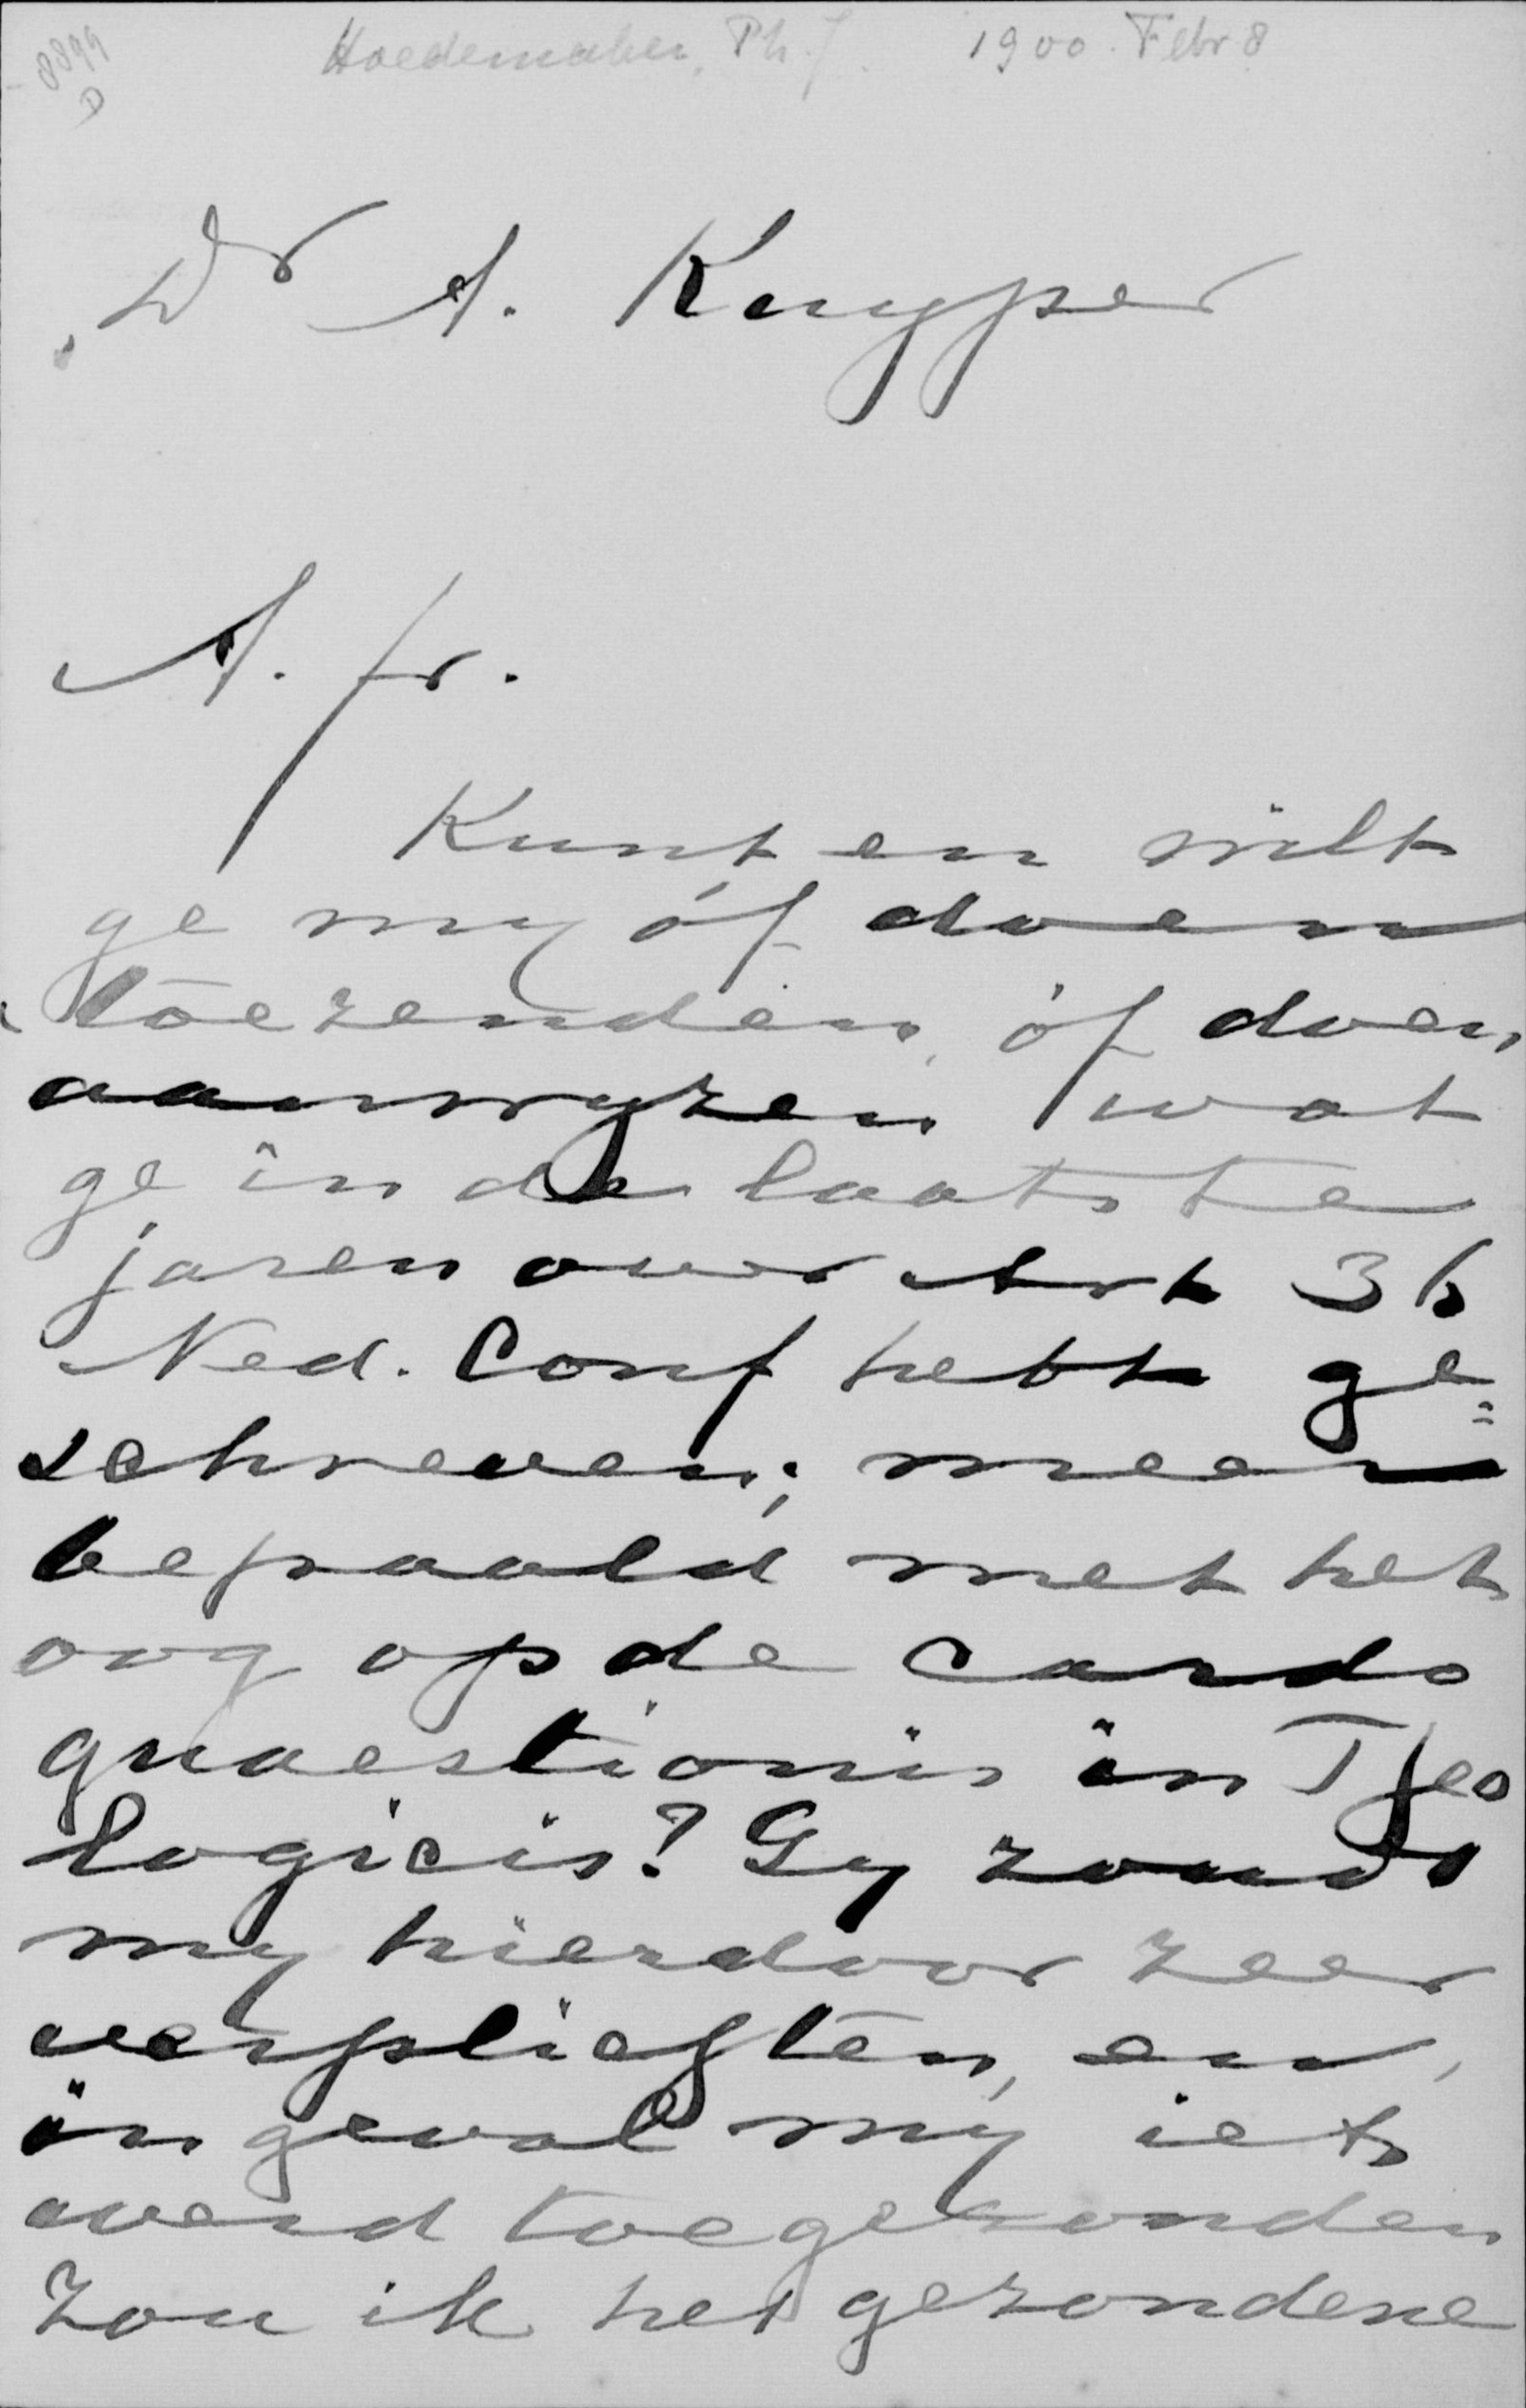 8899
D
Hoedemaker, Ph. J. 1900. Febr 8
Dr A. Kuyper
A. fr.
Kunt en wilt
ge my óf doen
toezenden, óf doen
aanwyzen wat
ge in de laatste
jaren over Art 36
Ned. Conf hebt ge=
schreven; meer
bepaald met het
oog op de cardo
quaestionis in Theo
logicis? Gy zoudt
my hierdoor zeer
verplichten, en,
in geval my iets
werd toegezonden
zou ik het gezondene